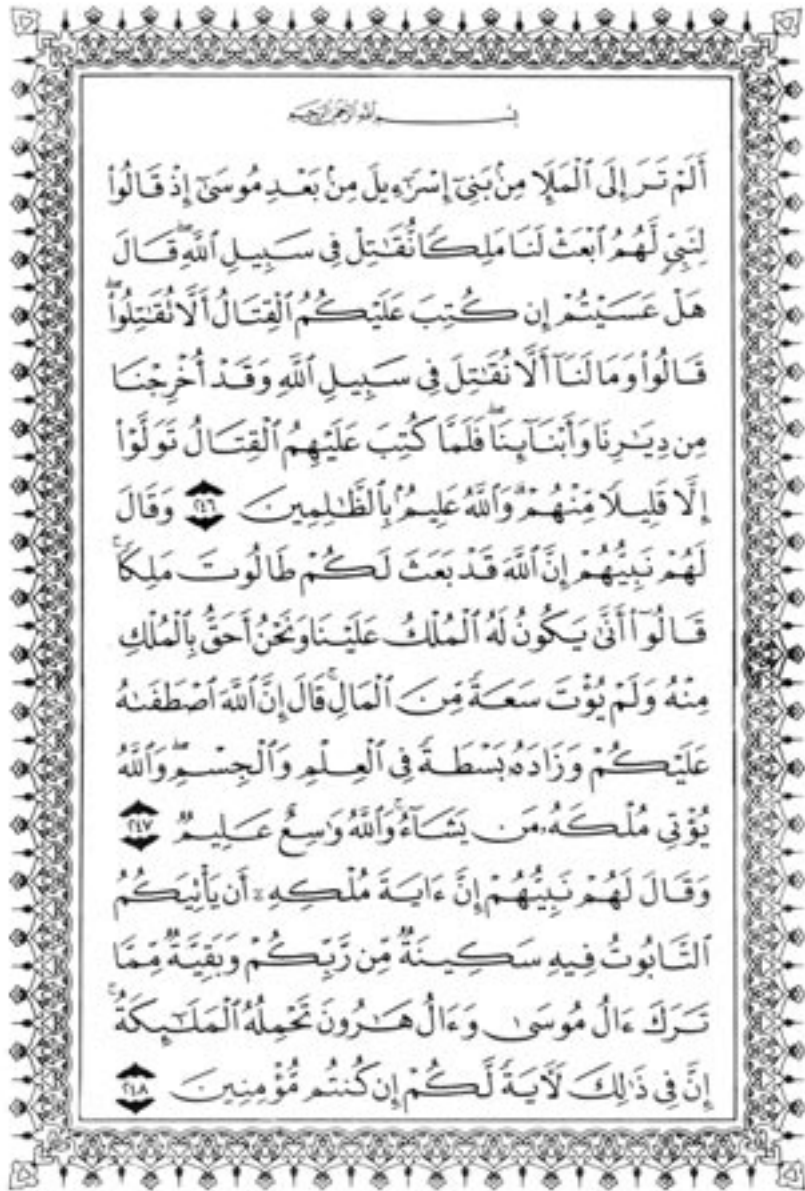 بِسْمِ اللَّهِ الرَّحْمَٰنِ الرَّحِيمِ
أَلَمْ تَرَ إِلَى ٱلْمَلَإِ مِنۢ بَنِىٓ إِسْرَٰٓءِيلَ مِنۢ بَعْدِ مُوسَىٰٓ إِذْ قَالُوا۟
لِنَبِىٍّ لَّهُمُ ٱبْعَثْ لَنَا مَلِكًا نُّقَٰتِلْ فِى سَبِيلِ ٱللَّهِ ۖ قَالَ
هَلْ عَسَيْتُمْ إِن كُتِبَ عَلَيْكُمُ ٱلْقِتَالُ أَلَّا تُقَٰتِلُوا۟ ۖ
قَالُوا۟ وَمَا لَنَآ أَلَّا نُقَٰتِلَ فِى سَبِيلِ ٱللَّهِ وَقَدْ أُخْرِجْنَا
مِن دِيَٰرِنَا وَأَبْنَآئِنَا ۖ فَلَمَّا كُتِبَ عَلَيْهِمُ ٱلْقِتَالُ تَوَلَّوْا۟
إِلَّا قَلِيلًا مِّنْهُمْ ۗ وَٱللَّهُ عَلِيمٌۢ بِٱلظَّٰلِمِينَ ٢٤٦ وَقَالَ
لَهُمْ نَبِيُّهُمْ إِنَّ ٱللَّهَ قَدْ بَعَثَ لَكُمْ طَالُوتَ مَلِكًا ۚ
قَالُوٓا۟ أَنَّىٰ يَكُونُ لَهُ ٱلْمُلْكُ عَلَيْنَا وَنَحْنُ أَحَقُّ بِٱلْمُلْكِ
مِنْهُ وَلَمْ يُؤْتَ سَعَةً مِّنَ ٱلْمَالِ ۚ قَالَ إِنَّ ٱللَّهَ ٱصْطَفَىٰهُ
عَلَيْكُمْ وَزَادَهُۥ بَسْطَةً فِى ٱلْعِلْمِ وَٱلْجِسْمِ ۖ وَٱللَّهُ
يُؤْتِى مُلْكَهُۥ مَن يَشَآءُ ۚ وَٱللَّهُ وَٰسِعٌ عَلِيمٌ ٢٤٧
وَقَالَ لَهُمْ نَبِيُّهُمْ إِنَّ ءَايَةَ مُلْكِهِۦٓ أَن يَأْتِيَكُمُ
ٱلتَّابُوتُ فِيهِ سَكِينَةٌ مِّن رَّبِّكُمْ وَبَقِيَّةٌ مِّمَّا
تَرَكَ ءَالُ مُوسَىٰ وَءَالُ هَٰرُونَ تَحْمِلُهُ ٱلْمَلَٰٓئِكَةُ ۚ
إِنَّ فِى ذَٰلِكَ لَءَايَةً لَّكُمْ إِن كُنتُم مُّؤْمِنِينَ ٢٤٨